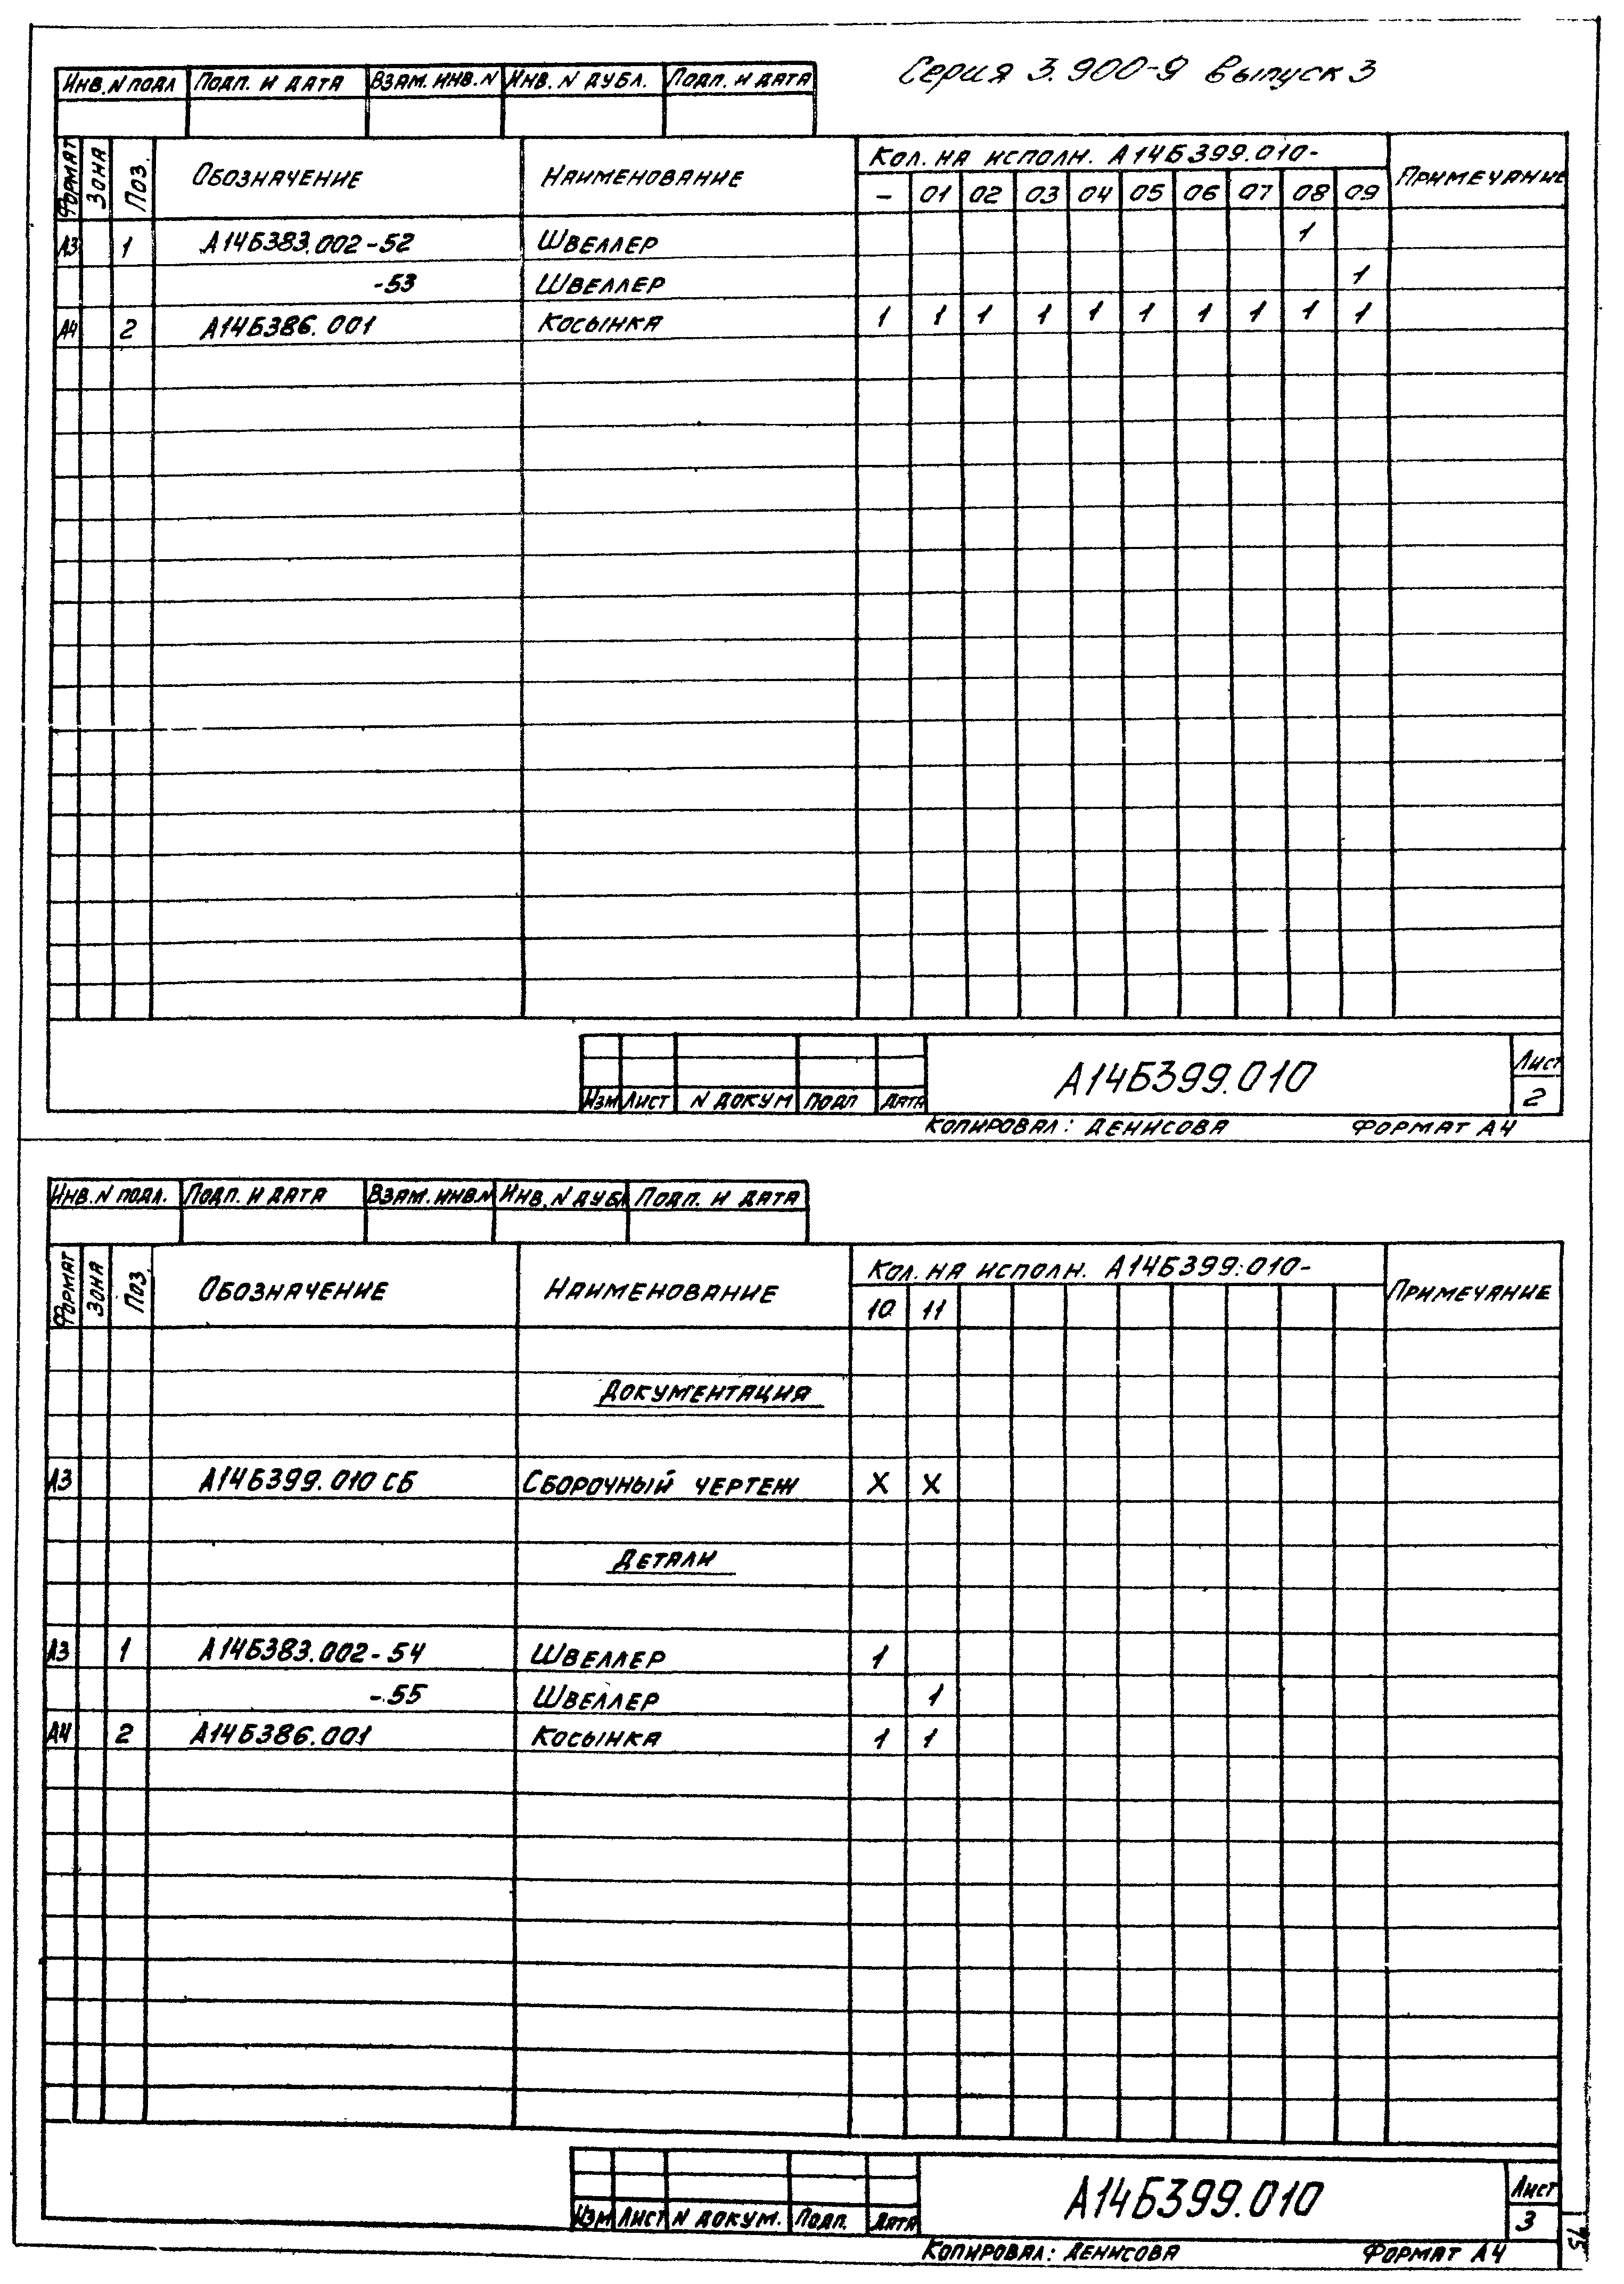 Серия 3.900-9 выпуск 3
Инв. N подл Подп. и дата Взам. инв. N Инв. N дубл. Подп. и дата
Формат Зона Поз. Обозначение Наименование Кол. на исполн. А14Б399.010- Примечание
- 01 02 03 04 05 06 07 08 09
А3 1 А14Б383.002-52 Швеллер 1
-53 Швеллер 1
А4 2 А14Б386.001 Косынка 1 1 1 1 1 1 1 1 1 1
А14Б399.010 Лист
2
Изм Лист N докум Подп Дата
Копировал: Денисова Формат А4
Инв. N подл. Подп. и дата Взам. инв. N Инв. N дубл Подп. и дата
Формат Зона Поз. Обозначение Наименование Кол. на исполн. А14Б399.010- Примечание
10 11
Документация
А3 А14Б399.010 СБ Сборочный чертеж X X
Детали
А3 1 А14Б383.002-54 Швеллер 1
-55 Швеллер 1
А4 2 А14Б386.001 Косынка 1 1
А14Б399.010 Лист
3
Изм Лист N докум. Подп. Дата
Копировал: Денисова Формат А4